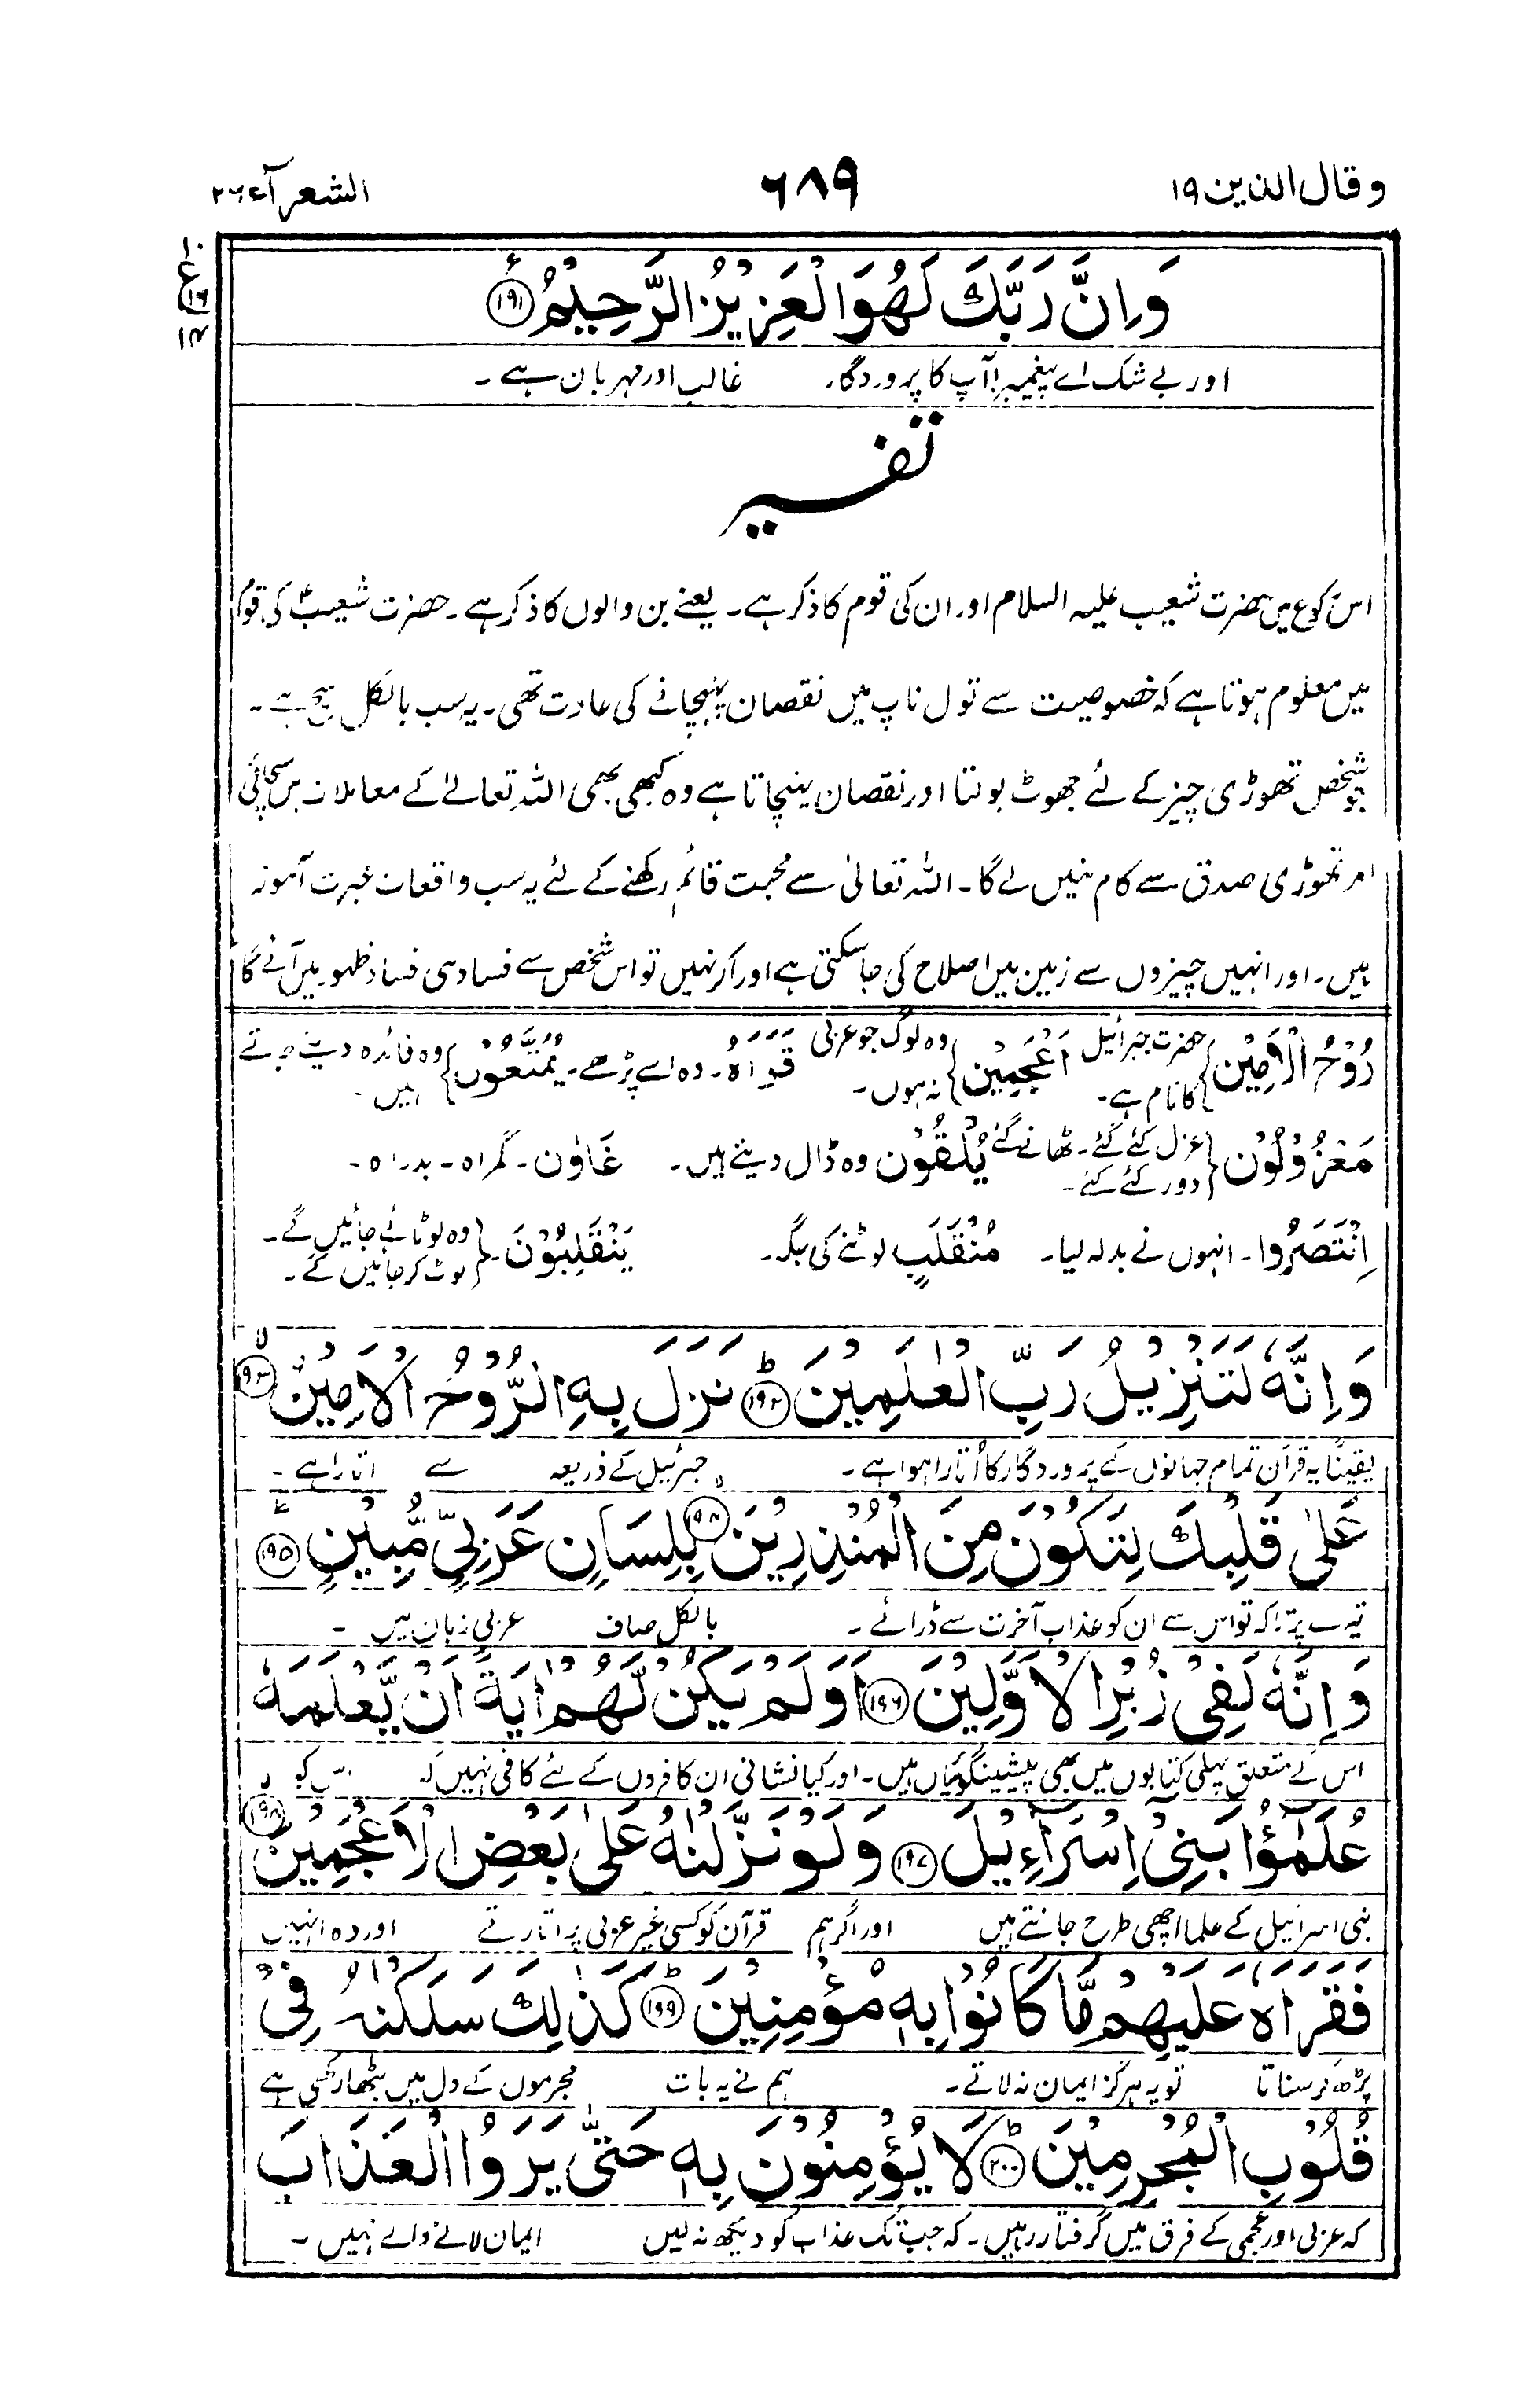 وقال الذین ۱۹ ۶۸۹ الشعرآء ۲۶
۱۰ ع ۱۶ ۱۴
وَاِنَّ رَبَّكَ لَهُوَ الْعَزِیْزُ الرَّحِیْمُ ۱۹۱
اور بے شک اے پیغمبر! آپ کا پروردگار غالب اور مہربان ہے ۔
تفسیر
اس رکوع میں حضرت شعیب علیہ السلام اور ان کی قوم کا ذکر ہے ۔ یعنے بن والوں کا ذکر ہے ۔ حضرت شعیبؑ کی قوم
میں معلوم ہوتا ہے کہ خصوصیت سے تول ناپ میں نقصان پہنچانے کی عادت تھی ۔ یہ سب بالکل سچ ہے ۔
جو شخص تھوڑی چیز کے لئے جھوٹ بولتا اور نقصان پہنچاتا ہے وہ کبھی بھی اللہ تعالےٰ کے معاملات میں سچائی
اور تھوڑی صدق سے کام نہیں لے گا ۔ اللہ تعالیٰ سے محبت قائم رکھنے کے لئے یہ سب واقعات عبرت آموز
ہیں ۔ اور انہیں چیزوں سے زمین میں اصلاح کی جا سکتی ہے اور اگر نہیں تو اس شخص سے فساد ہی فساد ظہور میں آئے گا
رُوْحُ الْاَمِیْن حضرت جبرائیل کا نام ہے ۔ اَعْجَمِیْن وہ لوگ جو عربی نہ ہوں ۔ قَرَاَہٗ ۔ وہ اسے پڑھے ۔ یُمَتَّعُوْن وہ فائدہ دیئے جاتے ہیں ۔
مَعْزُوْلُوْن عزل کئے گئے ۔ ہٹائے گئے دور کئے گئے ۔ یُلْقُوْن وہ ڈال دیتے ہیں ۔ غَاوٗن ۔ گمراہ ۔ بدراہ ۔
اِنْتَصَرُوا ۔ انہوں نے بدلہ لیا ۔ مُنْقَلَبٍ لوٹنے کی جگہ ۔ یَنْقَلِبُوْنَ ۔ وہ لوٹائے جائیں گے ۔ لوٹ کر جائیں گے ۔
وَاِنَّهٗ لَتَنْزِیْلُ رَبِّ الْعٰلَمِیْنَ ۱۹۲ نَزَلَ بِهِ الرُّوْحُ الْاَمِیْنُ ۱۹۳
یقینًا یہ قرآن تمام جہانوں کے پروردگار کا اُتارا ہوا ہے ۔ جبرئیل کے ذریعہ سے اتارا ہے ۔
عَلٰی قَلْبِكَ لِتَكُوْنَ مِنَ الْمُنْذِرِیْنَ ۱۹۴ بِلِسَانٍ عَرَبِیٍّ مُّبِیْنٍ ۱۹۵
تیرے پر تاکہ تو اس سے ان کو عذاب آخرت سے ڈرائے ۔ بالکل صاف عربی زبان میں ۔
وَاِنَّهٗ لَفِیْ زُبُرِ الْاَوَّلِیْنَ ۱۹۶ اَوَلَمْ یَكُنْ لَّهُمْ اٰیَةً اَنْ یَّعْلَمَهٗ
اس کے متعلق پہلی کتابوں میں بھی پیشینگوئیاں ہیں ۔ اور کیا نشانی ان کافروں کے لئے کافی نہیں کہ اس کو
عُلَمٰٓؤُا بَنِیْٓ اِسْرَآءِیْلَ ۱۹۷ وَلَوْ نَزَّلْنٰهُ عَلٰی بَعْضِ الْاَعْجَمِیْنَ ۱۹۸
بنی اسرائیل کے علما اچھی طرح جانتے ہیں اور اگر ہم قرآن کو کسی غیر عربی پر اتارتے اور وہ انہیں
فَقَرَاَهٗ عَلَیْهِمْ مَّا كَانُوْا بِهٖ مُؤْمِنِیْنَ ۱۹۹ كَذٰلِكَ سَلَكْنٰهُ فِیْ
پڑھ کر سناتا تو یہ ہرگز ایمان نہ لاتے ۔ ہم نے یہ بات مجرموں کے دل میں بٹھا رکھی ہے
قُلُوْبِ الْمُجْرِمِیْنَ ۲۰۰ لَا یُؤْمِنُوْنَ بِهٖ حَتّٰی یَرَوُا الْعَذَابَ
کہ عربی اور عجمی کے فرق میں گرفتار رہیں ۔ کہ جب تک عذاب کو دیکھ نہ لیں ایمان لانے والے نہیں ۔